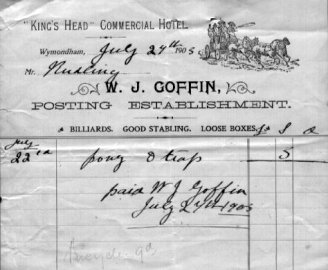 "KING'S HEAD" COMMERCIAL HOTEL.
Wymondham, July 27th 1905
Mr. Nudling
W. J. GOFFIN,
POSTING ESTABLISHMENT.
BILLIARDS. GOOD STABLING. LOOSE BOXES. £ S d
July
22nd pony & trap 5
paid W J Goffin
July 27th 1905